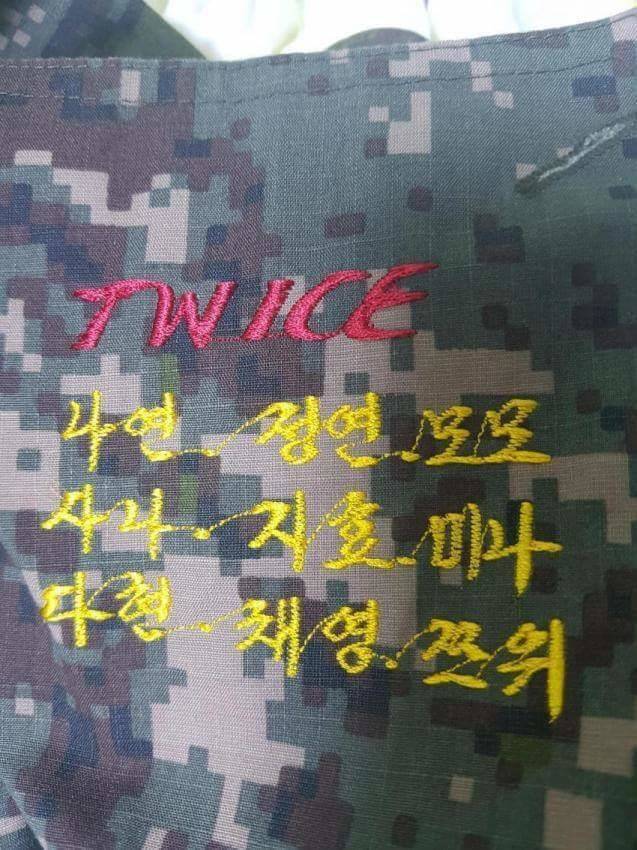 TWICE
나연 정연 모모
사나 지효 미나
다현 채영 쯔위